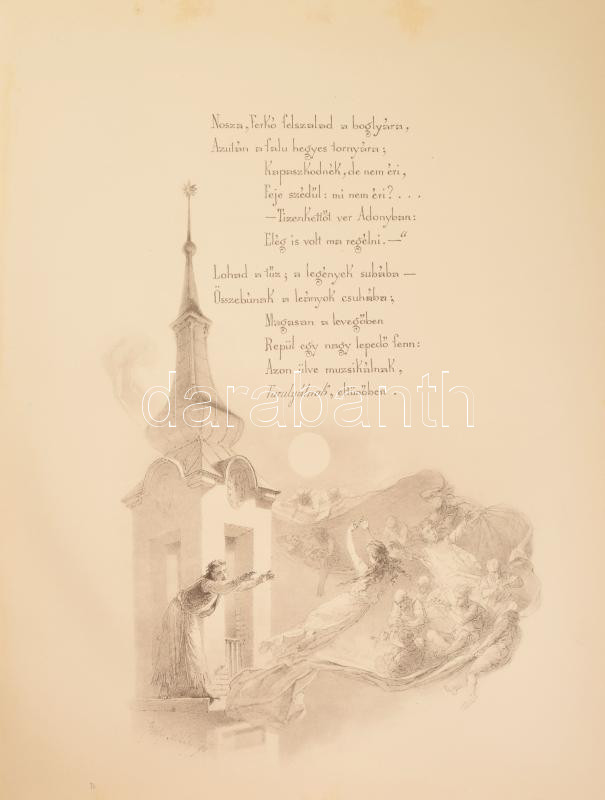 Nosza, Ferkó felszalad a boglyára,
Azután a falu hegyes tornyára;
Kapaszkodnék, de nem éri,
Feje szédül: mi nem éri?...
—Tizenkettőt ver Adonyban:
Elég is volt ma regélni.—"
Lohad a tűz; a legények subába —
Összebúnak a leányok csuhába;
Magasan a levegőben
Repűl egy nagy lepedő fenn:
Azon űlve muzsikálnak,
Furulyálnak, eltűnőben.
darabanth